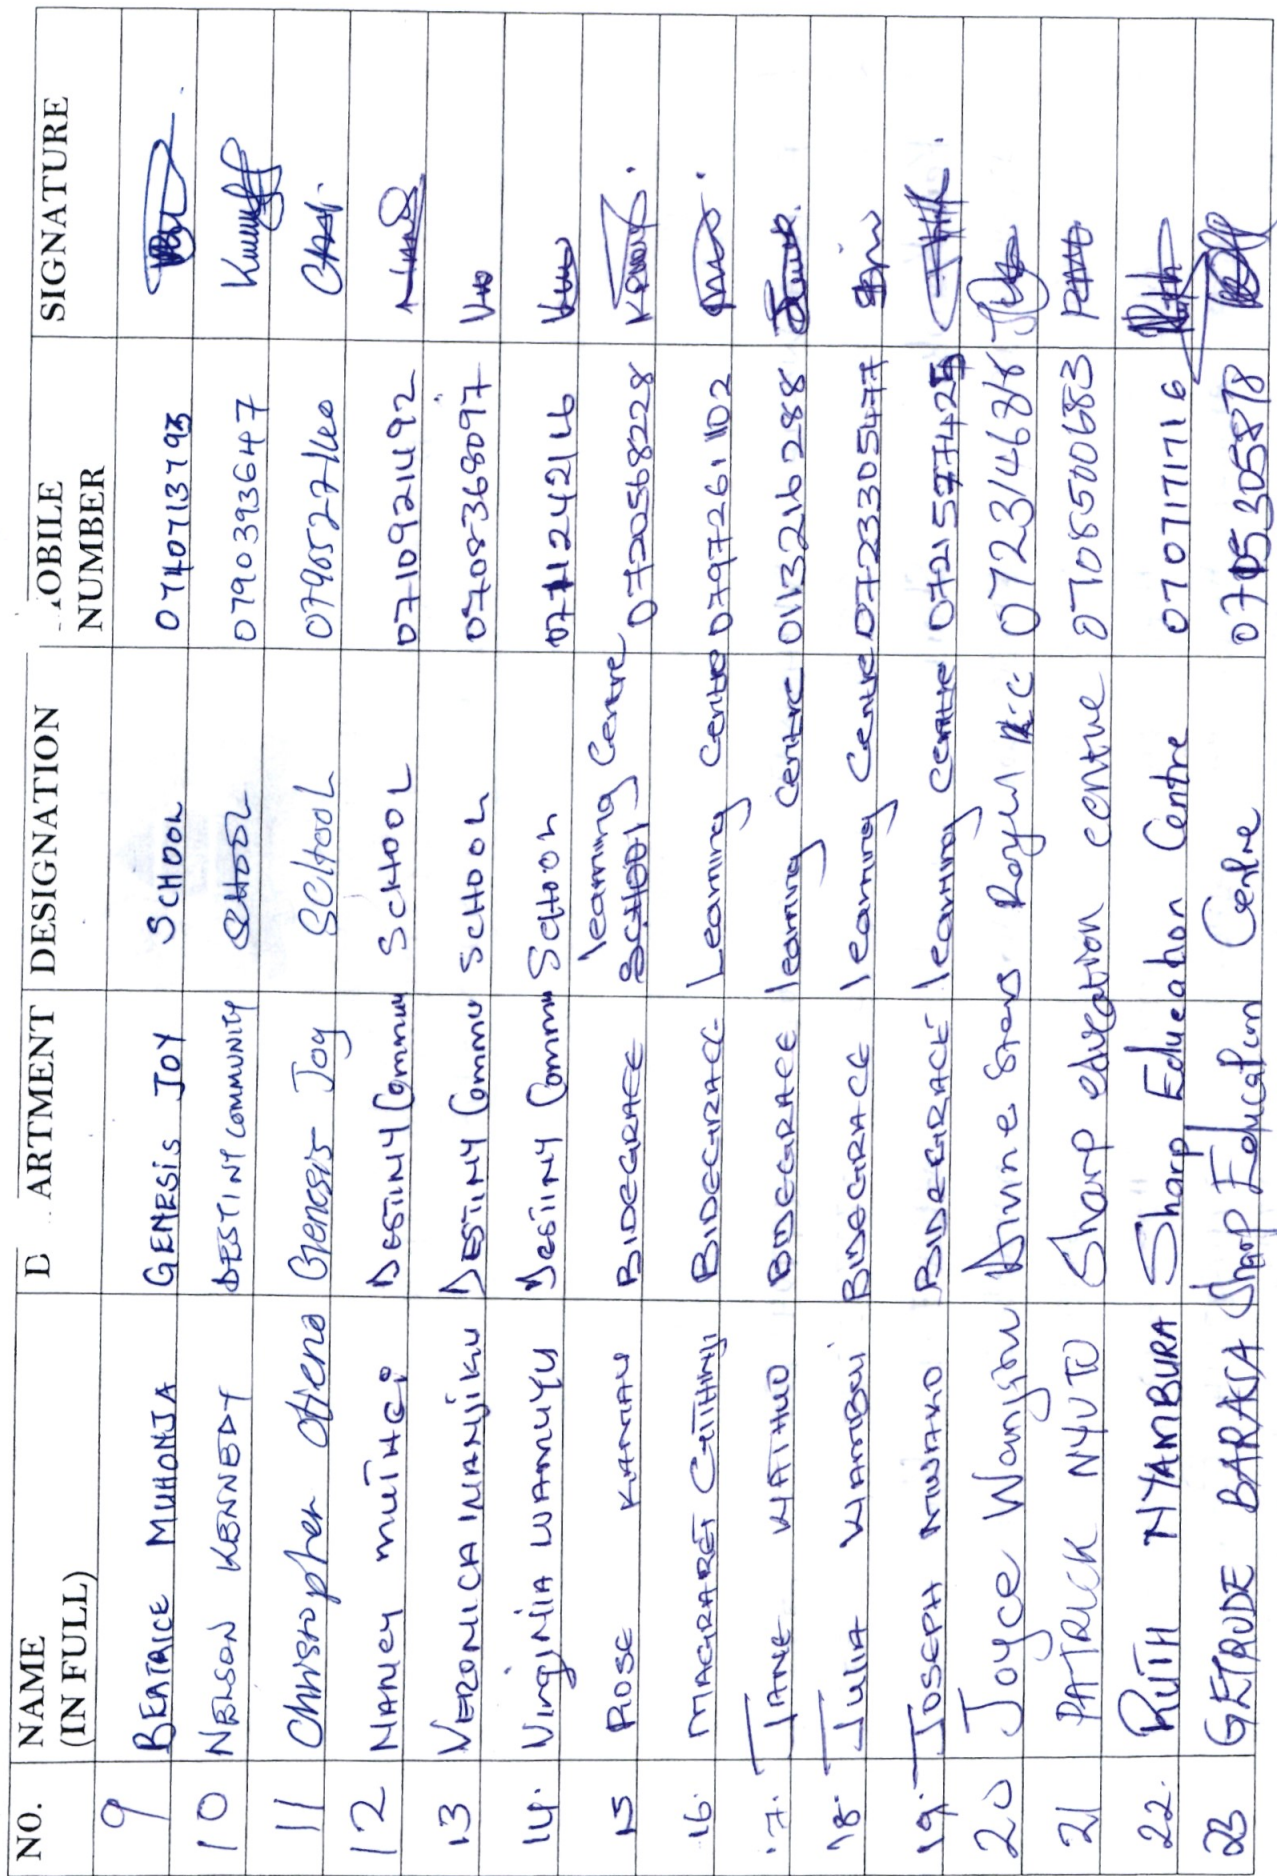 NO. NAME (IN FULL) D ARTMENT DESIGNATION OBILE NUMBER SIGNATURE
9 BEATRICE MUHONJA GENESIS JOY SCHOOL 0740713793
10 NELSON KENNEDY DESTINY COMMUNITY SCHOOL 0790393647
11 Christopher Otieno Genesis Joy SCHOOL
12 NANCY MUTHGI DESTINY Commun SCHOOL 0710921492
13 VERONICA WANJIKU DESTINY Commu SCHOOL 0708368097
14. VIRGINIA WAMUYU DESTINY Commu SCHOOL
15 ROSE KAMAU BIDEGRACE learning Centre 0720568228
16. MAGRARET GITHINJI BIDEGRACE Learning Centre 0797261102
17. JANE WAITHUO BIDEGRACE learning Centre 0113216288
18. JULIA WAMBUI BIDEGRACE learning Centre 0723305477
19. JOSEPH BIDEGRACE learning Centre 0721577425
20 Joyce Wangari Divine Stars
21 PATRICK NYUTO Sharp education centre 0708500683
22. RUTH NYAMBURA Sharp Education Centre 070717171 6
23 GETRUDE BARASA Sharp Education Centre 0705305878